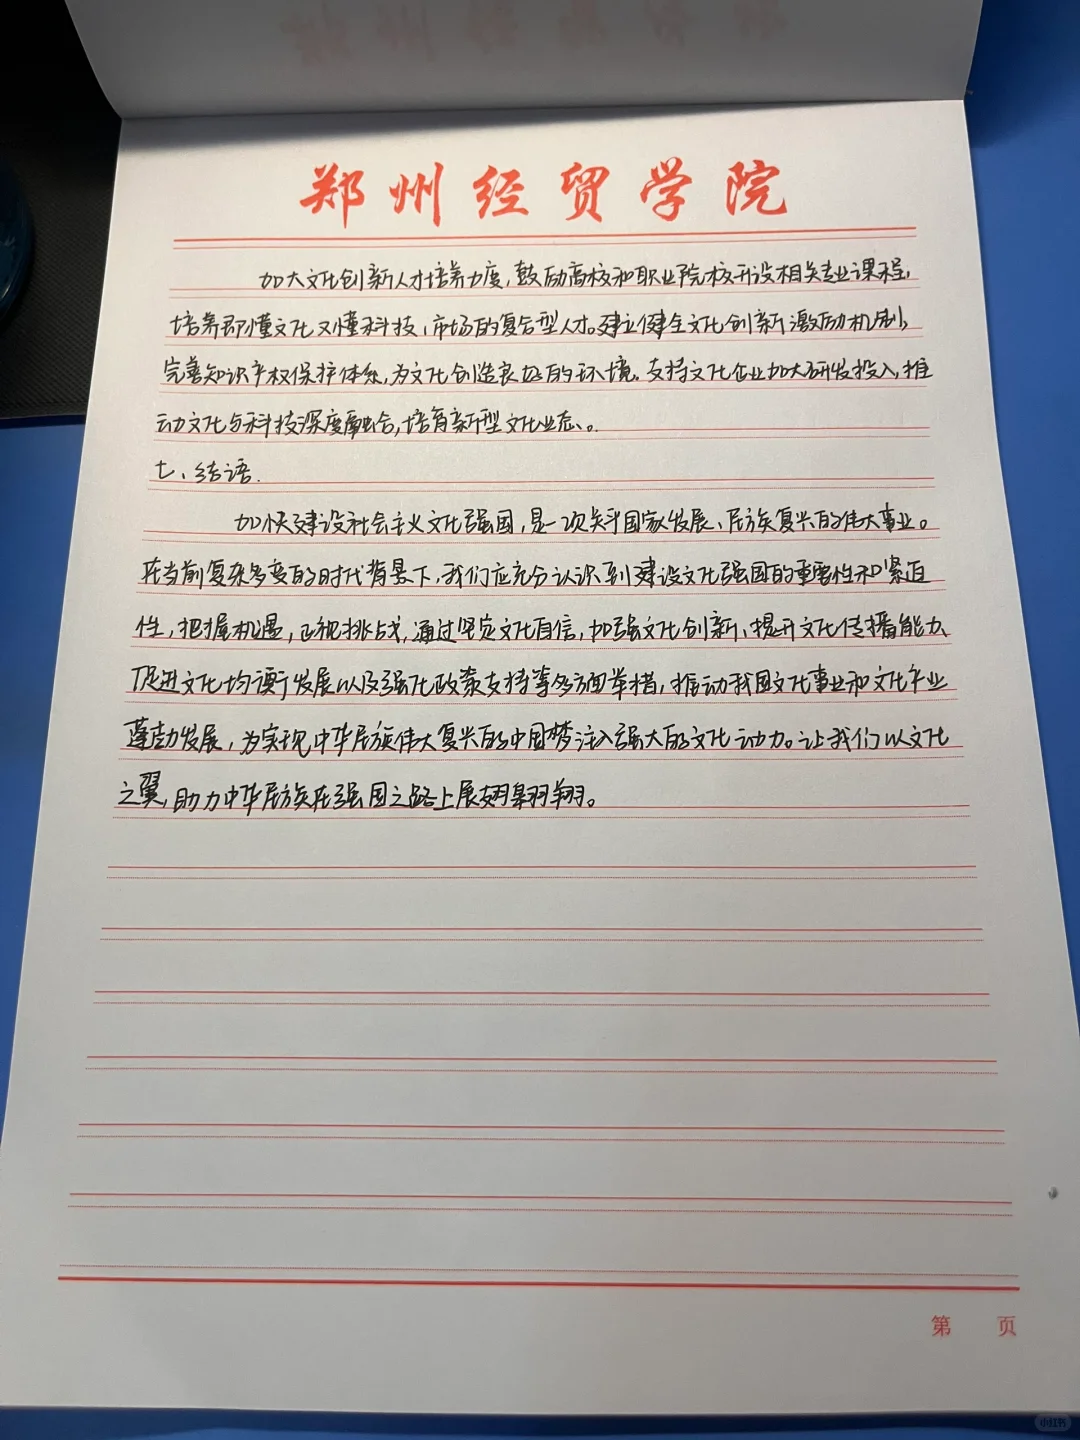 郑州经贸学院
加大文化创新人才培养力度，鼓励高校和职业院校开设相关专业课程，
培养即懂文化又懂科技，市场的复合型人才。建立健全文化创新激励机制，
完善知识产权保护体系，为文化创造良好的环境。支持文化企业加大研发投入，推
动文化与科技深度融合，培育新型文化业态。
七、结语.
加快建设社会主义文化强国，是一次关乎国家发展、民族复兴的伟大事业。
在当前复杂多变的时代背景下，我们应充分认识到建设文化强国的重要性和紧迫
性，把握机遇，正视挑战，通过坚定文化自信，加强文化创新、提升文化传播能力、
促进文化均衡发展以及强化政策支持等多方面举措，推动我国文化事业和文化产业
蓬勃发展，为实现中华民族伟大复兴的中国梦注入强大的文化动力。让我们以文化
之翼，助力中华民族在强国之路上展翅翱翔。
第 页
小红书